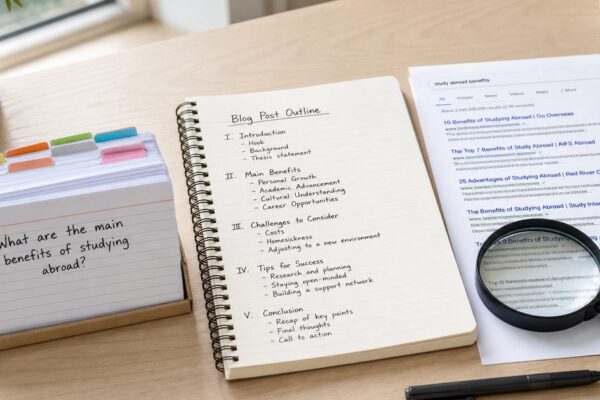 What are the main
benefits of studying
abroad?
Blog Post Outline
I. Introduction
- Hook
- Background
- Thesis statement
II. Main Benefits
- Personal Growth
- Academic Advancement
- Cultural Understanding
- Career Opportunities
III. Challenges to Consider
- Costs
- Homesickness
- Adjusting to a new environment
IV. Tips for Success
- Research and planning
- Staying open-minded
- Building a support network
V. Conclusion
- Recap of key points
- Final thoughts
- Call to action
study abroad benefits
All Images News Videos Maps More
10 Benefits of Studying Abroad | Go Overseas
The Top 7 Benefits of Study Abroad | AIFS Abroad
25 Advantages of Studying Abroad | Red River
The Benefits of Studying Abroad | Study